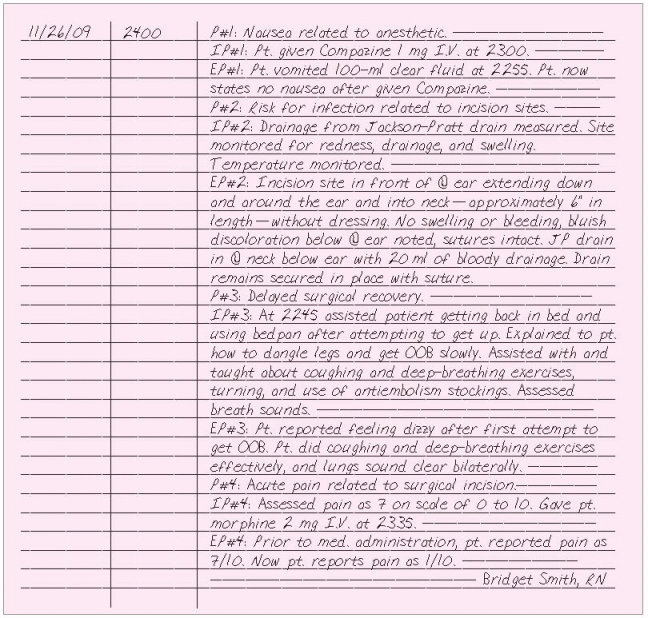 11/26/09 2400 P#1: Nausea related to anesthetic.
IP#1: Pt. given Compazine 1 mg I.V. at 2300.
EP#1: Pt. vomited 100-ml clear fluid at 2255. Pt. now
states no nausea after given Compazine.
P#2: Risk for infection related to incision sites.
IP#2: Drainage from Jackson-Pratt drain measured. Site
monitored for redness, drainage, and swelling.
Temperature monitored.
EP#2: Incision site in front of Ⓛ ear extending down
and around the ear and into neck—approximately 6" in
length—without dressing. No swelling or bleeding, bluish
discoloration below Ⓛ ear noted, sutures intact. JP drain
in Ⓛ neck below ear with 20 ml of bloody drainage. Drain
remains secured in place with suture.
P#3: Delayed surgical recovery.
IP#3: At 2245 assisted patient getting back in bed and
using bedpan after attempting to get up. Explained to pt.
how to dangle legs and get OOB slowly. Assisted with and
taught about coughing and deep-breathing exercises,
turning, and use of antiembolism stockings. Assessed
breath sounds.
EP#3: Pt. reported feeling dizzy after first attempt to
get OOB. Pt. did coughing and deep-breathing exercises
effectively, and lungs sound clear bilaterally.
P#4: Acute pain related to surgical incision.
IP#4: Assessed pain as 7 on scale of 0 to 10. Gave pt.
morphine 2 mg I.V. at 2335.
EP#4: Prior to med. administration, pt. reported pain as
7/10. Now pt. reports pain as 1/10.
Bridget Smith, RN